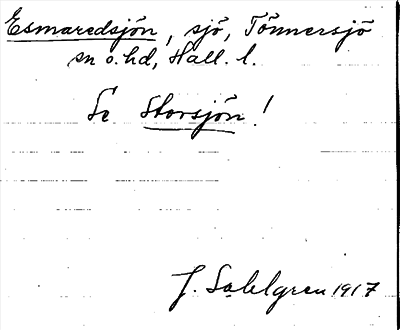 Esmaredsjön, sjö, Tönnersjö
sn o. hd, Hall. l.
Se Storsjön!
J. Sahlgren 1917